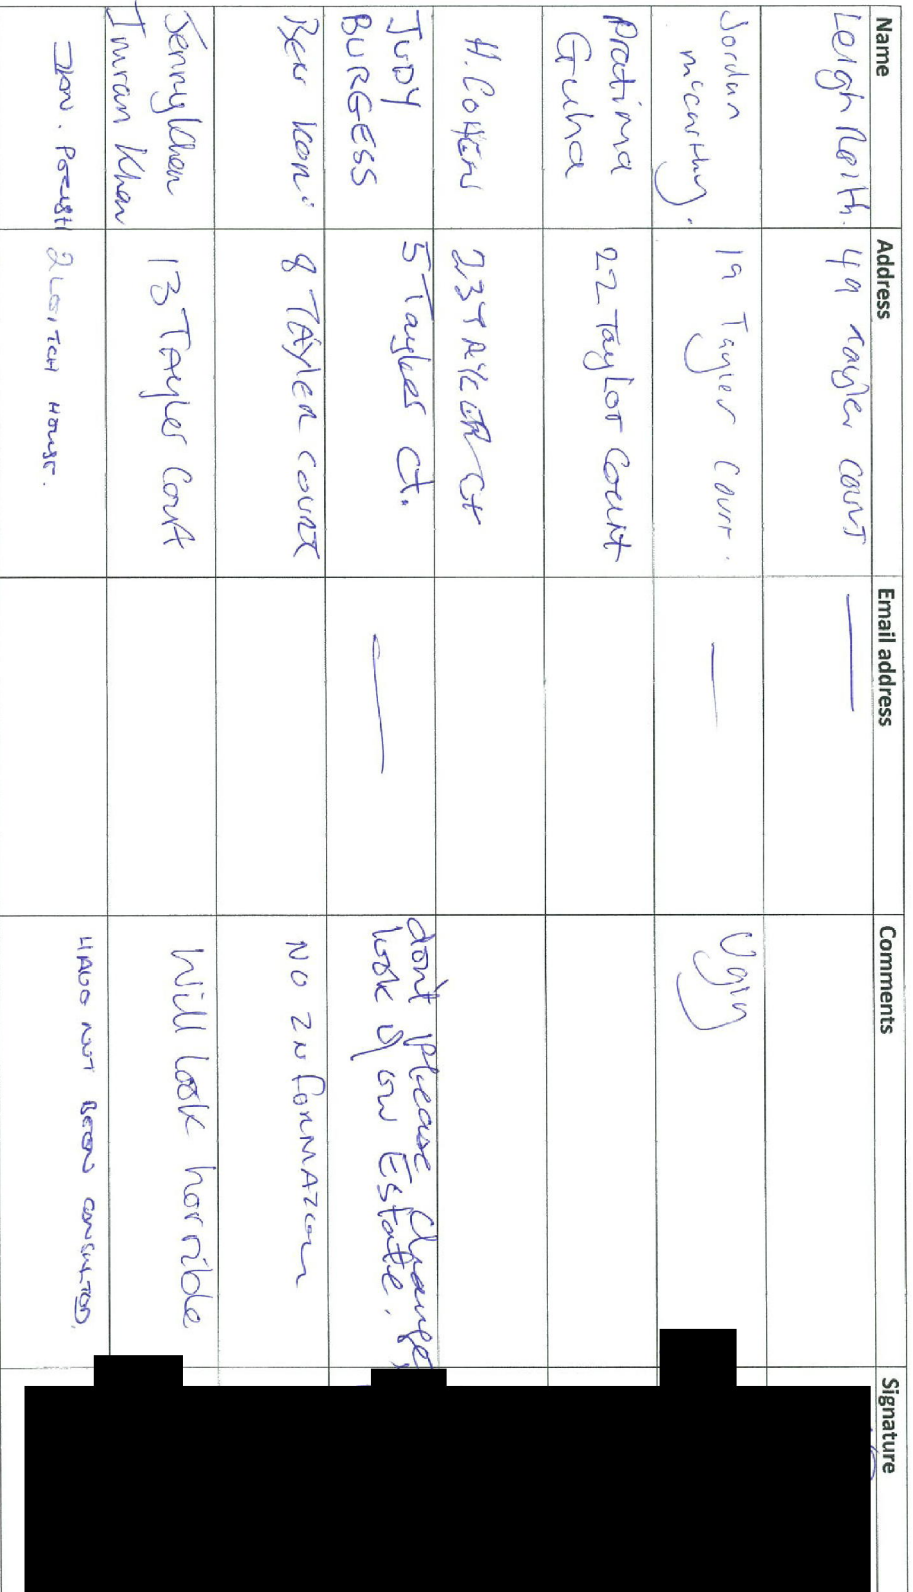 Name Address Email address Comments Signature
Leigh 49 Tayler Court —
Jordan
McCarthy. 19 Tayler Court. — Ugly
Pratima
Guha 22 Taylor Court
H. COHEN 23 TAYLER Ct
JUDY
BURGESS 5 Tayler Ct. — don't please change
look of our Estate.
8 TAYLER COURT NO INFORMATION
Jenny Khan
Imran Khan 13 Tayler Court Will look horrible
IAN. 2 LEITCH HOUSE. HAVE NOT BEEN CONSULTED.